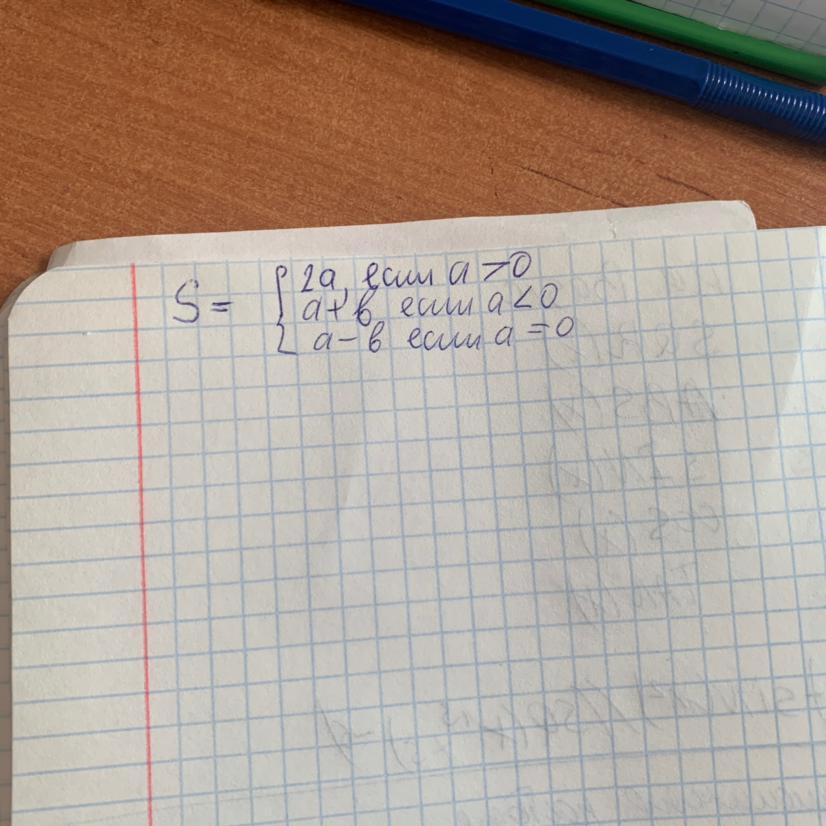 S = { 2a, если a > 0
a + b если a < 0
a - b если a = 0